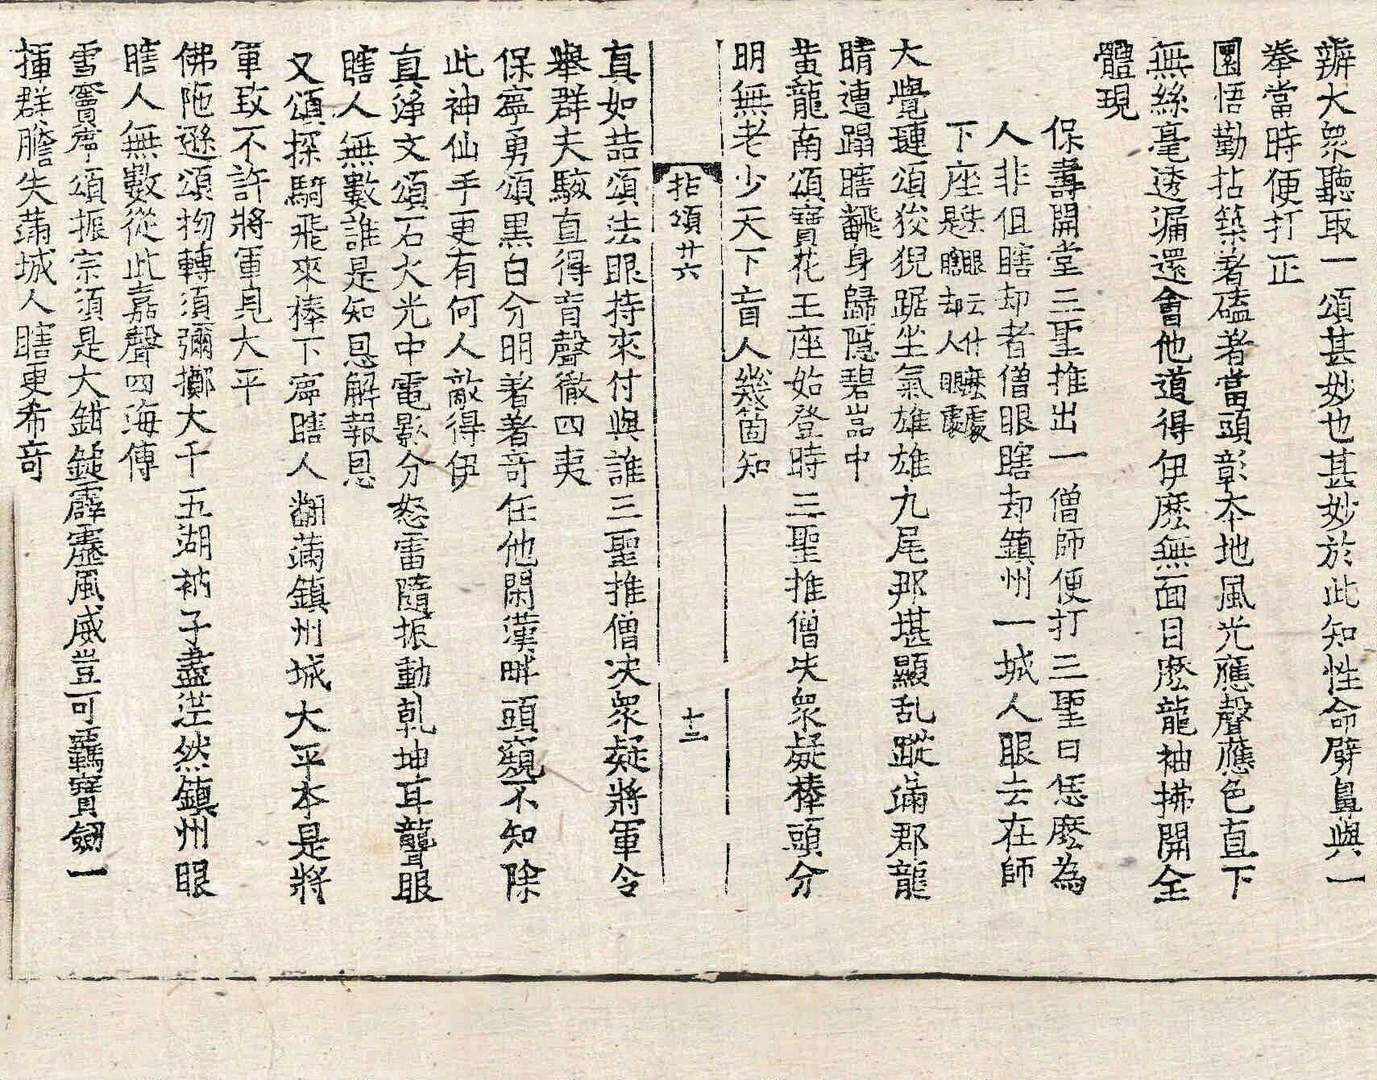 辦大衆聽取一頌甚妙也甚妙於此知性命劈鼻與一
拳當時便打正
圜悟勤拈築著磕著當頭彰本地風光應聲應色直下
無絲毫透漏還會他道得伊麽無面目麽龍袖拂開全
體現
保壽開堂三聖推出一僧師便打三聖曰恁麽為
人非但瞎却者僧眼瞎却鎮州一城人眼去在師
下座
眼云什麽處
是瞎却人眼處
大覺璉頌狻猊踞坐氣雄雄九尾那堪顯乱蹤滿郡龍
睛遭蹋瞎飜身歸隱碧嵓中
黄龍南頌寶花王座始登時三聖推僧决衆疑棒頭分
明無老少天下盲人幾箇知
拈頌廿六
十二
真如喆頌法眼持來付與誰三聖推僧决衆疑將軍令
舉群夫駭直得盲聾徹四夷
保寧勇頌黒白分明著著竒任他閑漢衅頭窺不知除
此神仙手更有何人敵得伊
真淨文頌石火光中電影分怒雷隨振動乹坤耳聾眼
瞎人無數誰是知恩解報恩
又頌探騎飛來棒下寧瞎人翻滿鎮州城大平本是將
軍致不許將軍見大平
佛陁遜頌物轉須彌擲大千五湖衲子盡茫然鎮州眼
瞎人無數從此嘉聲四海傳
雪竇寧頌振宗須是大鉗鎚霹靂風威豈可羈寶劒一
揮群膽失滿城人瞎更希竒